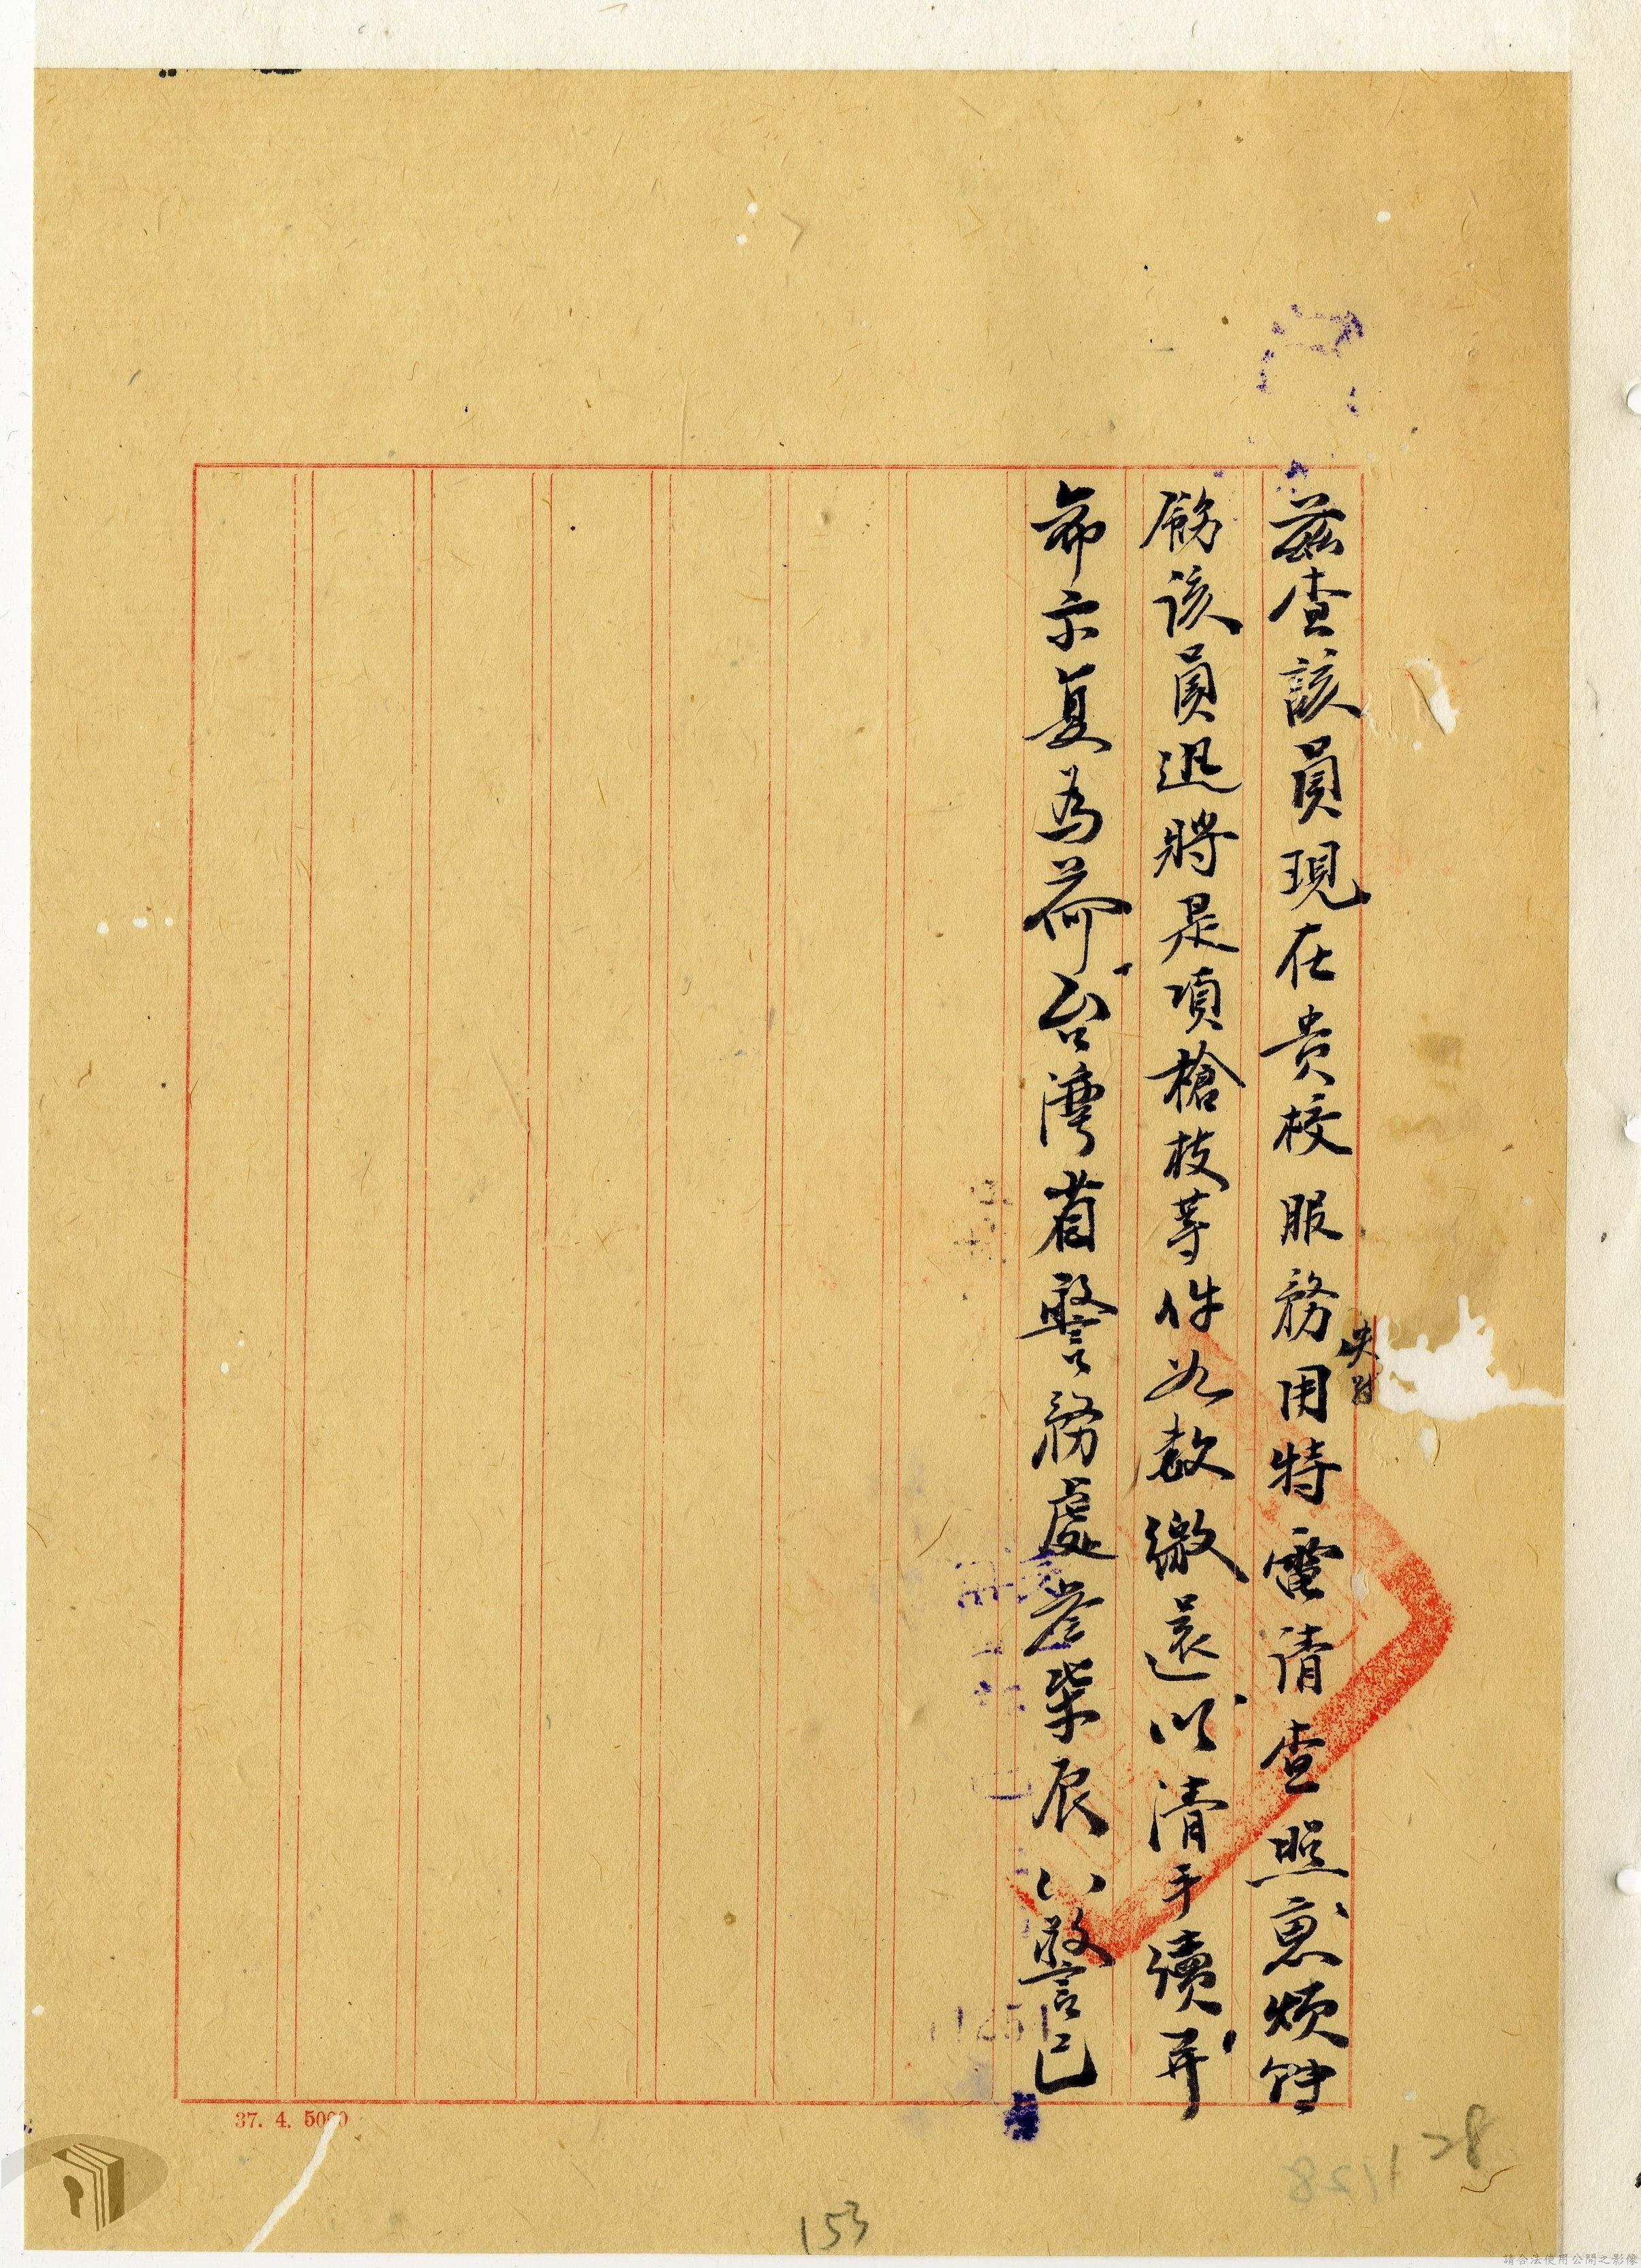 茲查該員現在貴校服務用特電請查照惠煩飭
飭該員迅將是項槍枝等件如数繳還以清手續并
希示复為荷台灣省警務處 辰 警己
37. 4. 5000
153
28
請合法使用公開之影像